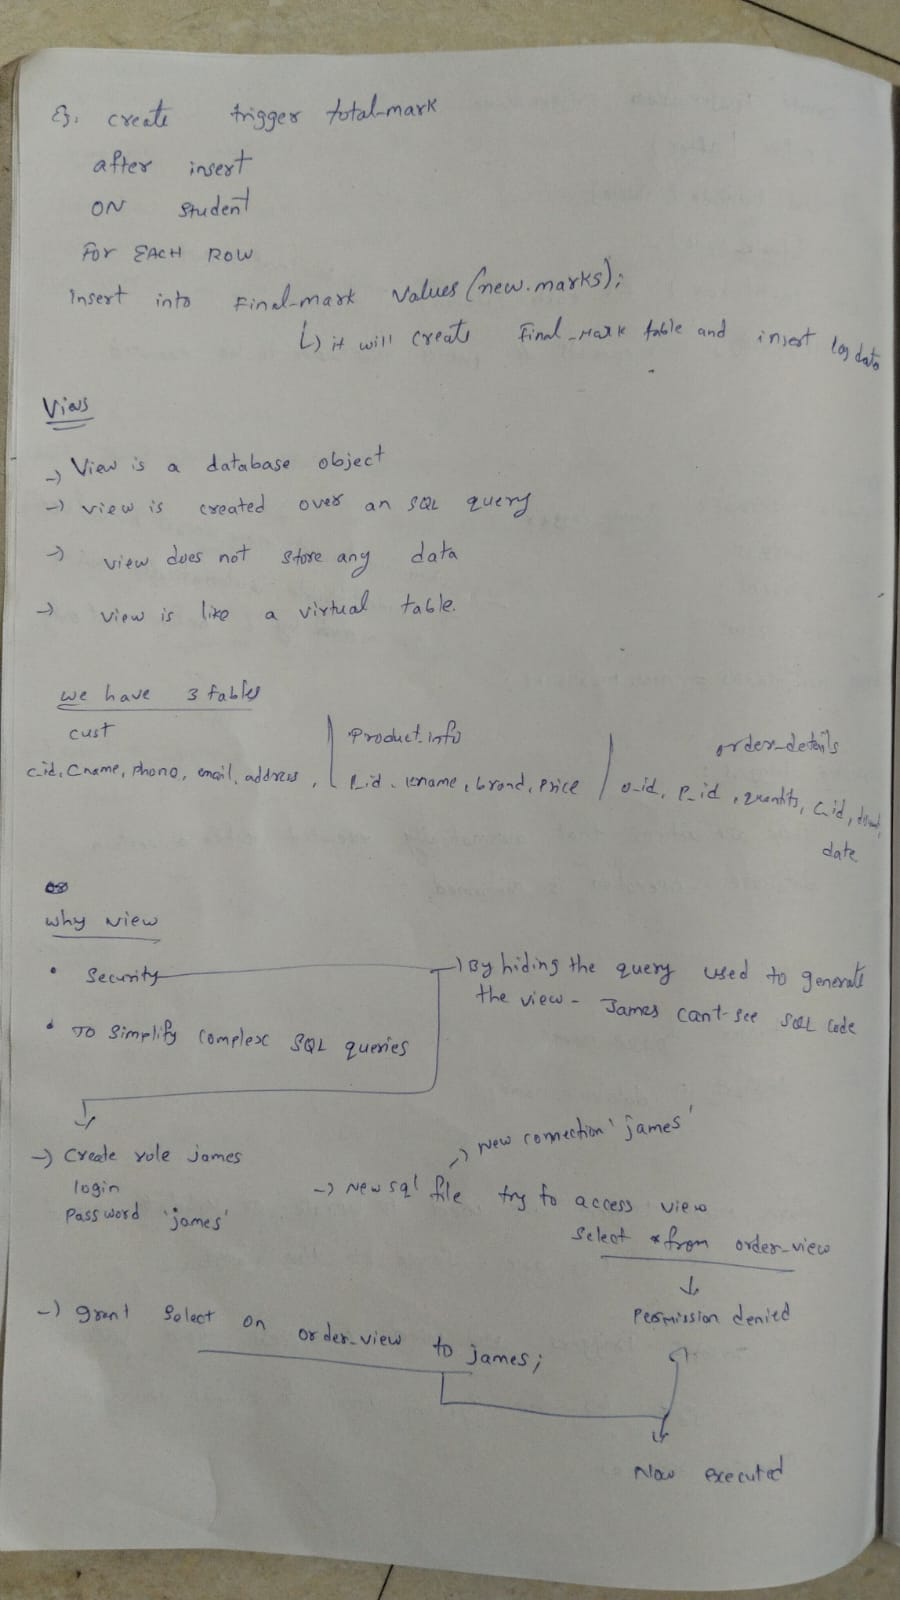 Eg. create trigger total-mark
after insert
ON student
For EACH ROW
insert into Final-mark Values (new.marks);
↳ it will create Final-Mark table and insert log data
Views
→ View is a database object
→ view is created over an SQL query
→ view does not store any data
→ view is like a virtual table.
we have 3 tables
cust
c-id, Cname, phono, email, address,
Product-info
P-id, name, brand, Price
order-details
o-id, P-id, quantity, C-id,
date
Why view
• Security → By hiding the query used to generate
the view - James cant see SQL code
• TO Simplify Complex SQL queries
→ Create role james
login
Password 'james'
→ New connection 'james'
→ New sql file try to access view
Select * from order-view
↓
Permission denied
→ grant Select on order-view to james;
Now executed